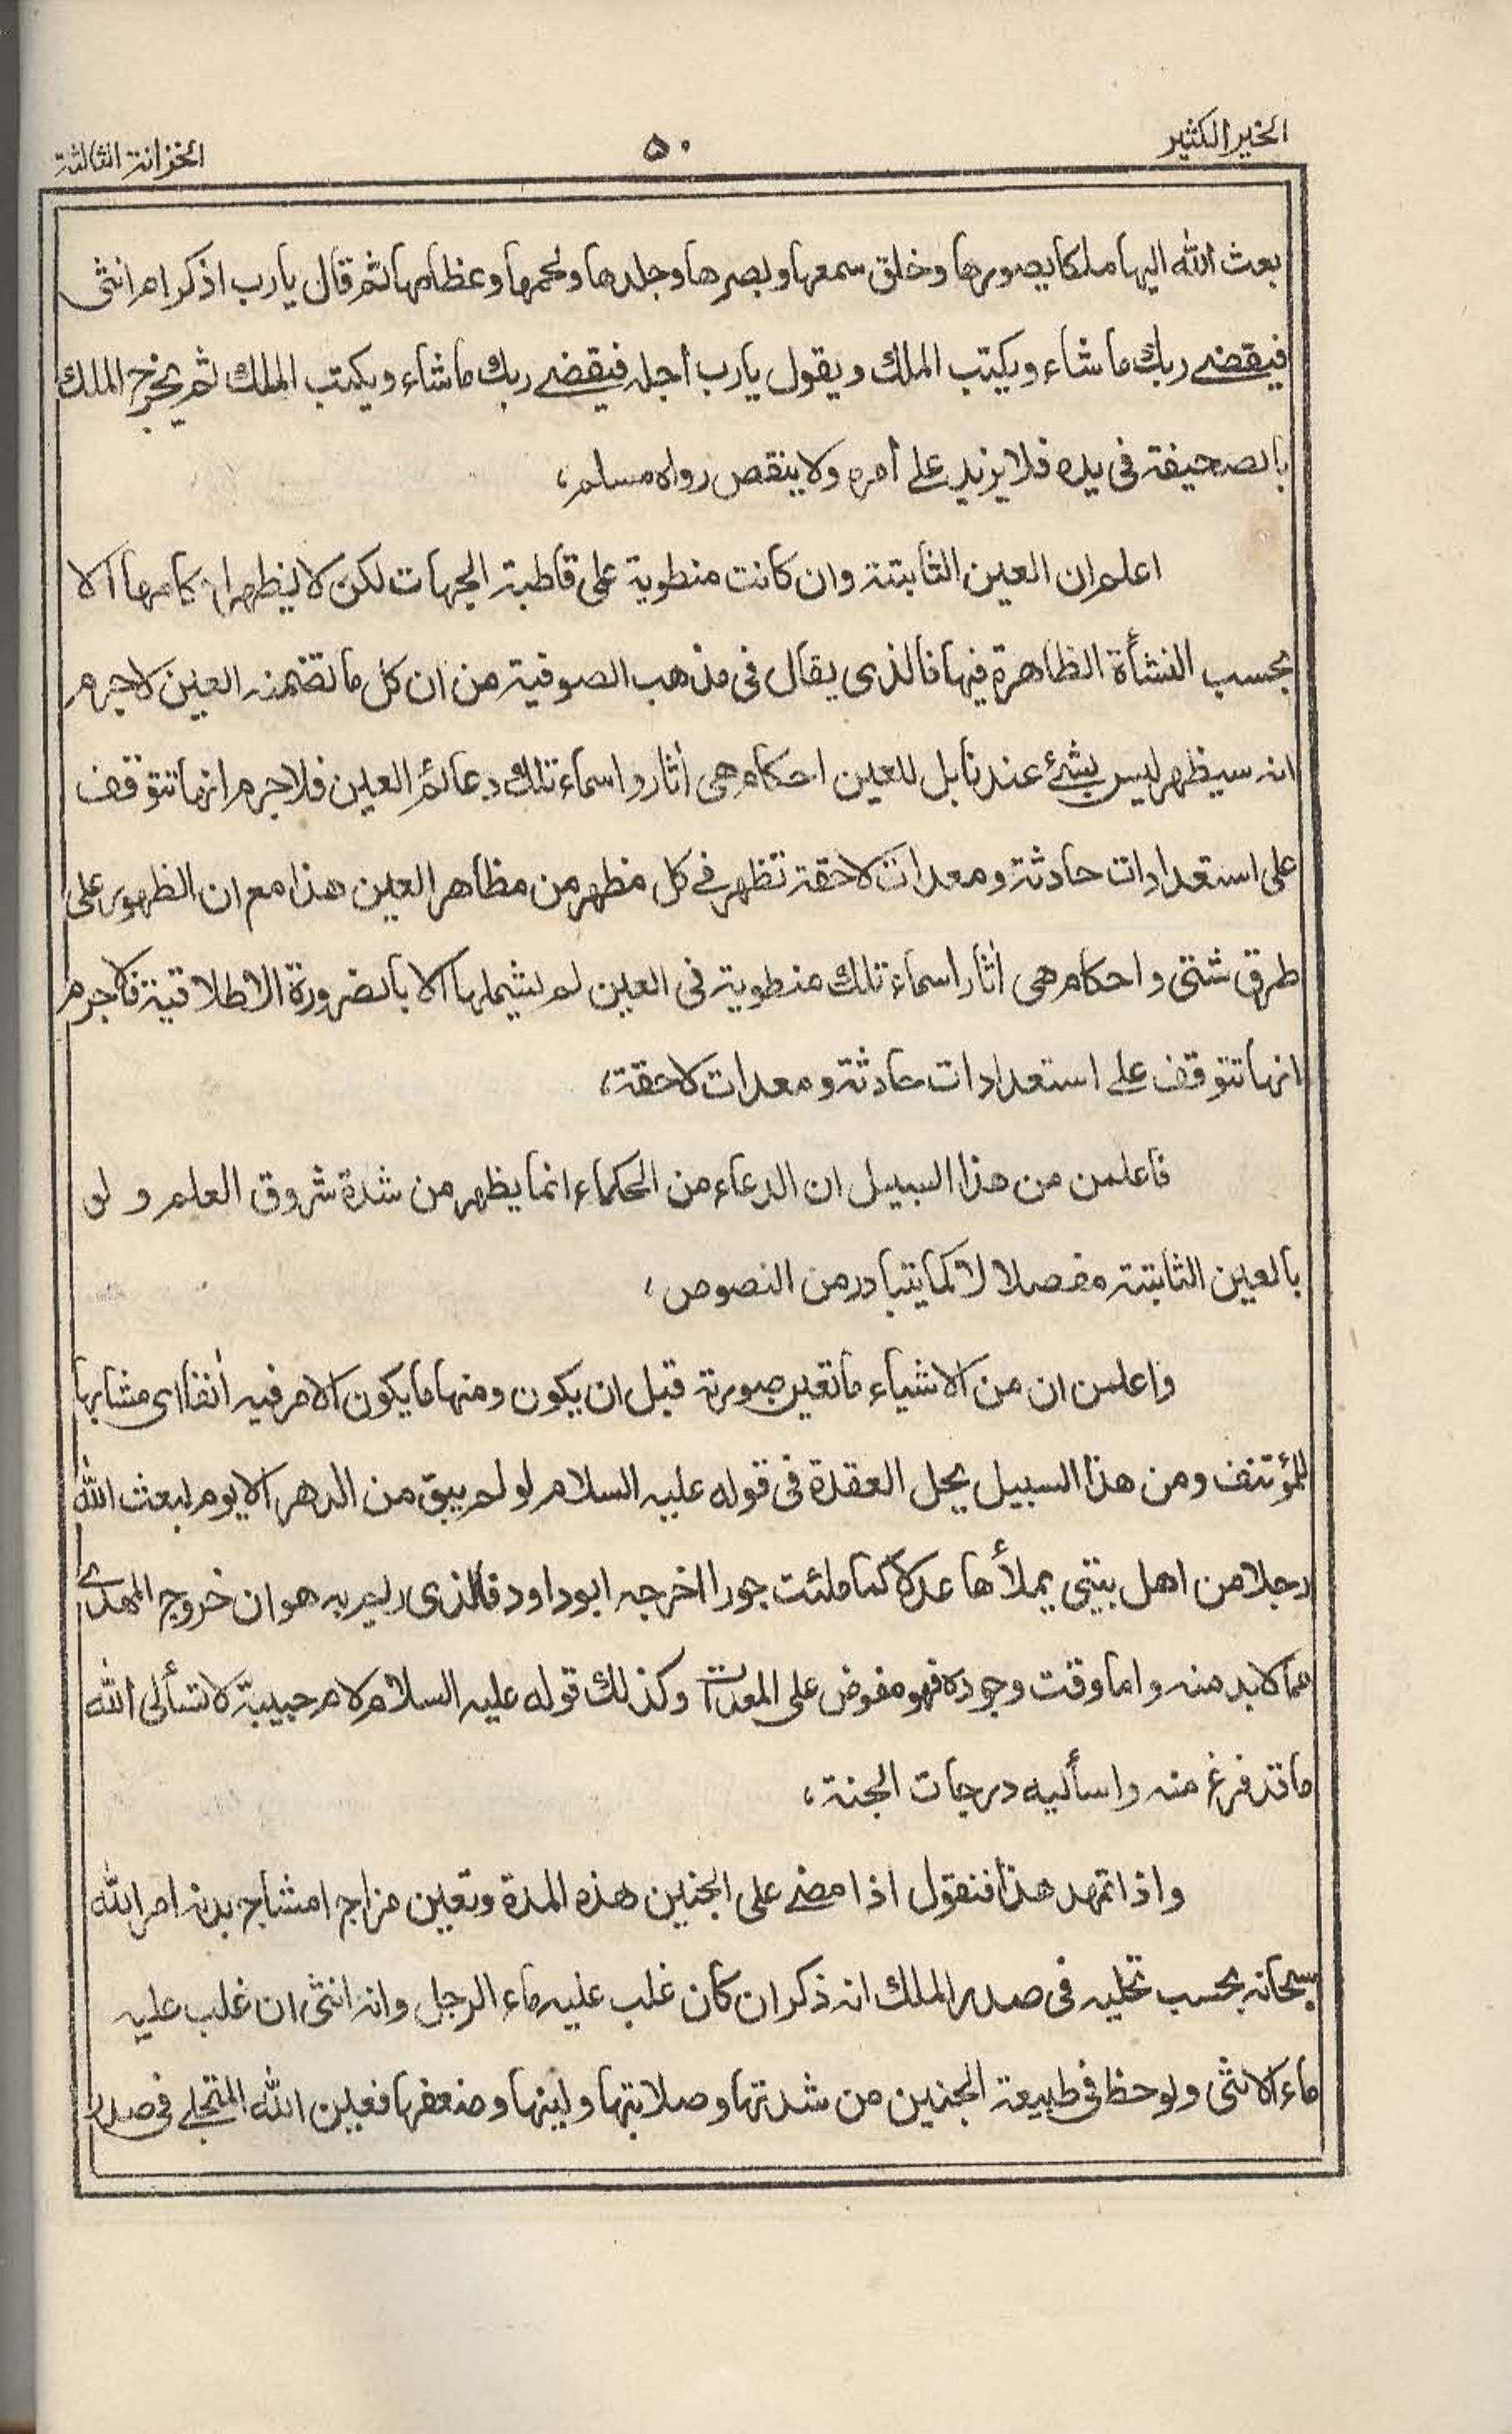 الخير الكثير
٥٠
الخزانة الثالثة
بعث الله اليها ملكا يصورها وخلق سمعها وبصرها وجلدها ولحمها وعظامها ثم قال يارب اذكر ام انثى
فيقضے ربك ما شاء ويكتب الملك ويقول يارب أجله فيقضے ربك ما شاء ويكتب الملك ثم يخرج الملك
بالصحيفة فى يده فلا يزيد علے أمره ولا ينقص رواه مسلم،
اعلم ان العين الثابتة وان كانت منطوية على قاطبة الجهات لكن لا يظهر احكامها الا
بحسب النشأة الظاهرة فيها فالذى يقال فى مذهب الصوفية من ان كل ما تضمنه العين لاجرم
انه سيظهر ليس بشئ عندنا بل للعين احكام هى أثار واسماء تلك دعائم العين فلاجرم انها تتوقف
على استعدادات حادثة ومعدات لاحقة تظهر فے كل مظهر من مظاهر العين هذا مع ان الظهور على
طرق شتى واحكام هى أثار اسماء تلك منطوية فى العين لم يشملها الا بالضرورة الاطلاقية فلاجرم
انها تتوقف علے استعدادات حادثة ومعدات لاحقة،
فاعلمن من هذا السبيل ان الدعاء من الحكماء انما يظهر من شدة شروق العلم و لو
بالعين الثابتة مفصلا لا كما يتبادر من النصوص،
واعلمن ان من الاشياء ما تعين صورته قبل ان يكون ومنها ما يكون الامر فيه أنفا اى مشابها
للمؤتنف ومن هذا السبيل يحل العقدة فى قوله عليه السلام لو لم يبق من الدهر الا يوم لبعث الله
رجلا من اهل بيتى يملأها عدلا كما ملئت جورا اخرجه ابوداود فالذى ريم به هو ان خروج المهدے
مما لابد منه واما وقت وجوده فهو مفوض على المعدات وكذلك قوله عليه السلام لام حبيبة لا تسألى الله
ما قد فرغ منه واسأليه درجات الجنة،
واذا تمهد هذا فنقول اذا مضے على الجنين هذه المدة وتعين مزاج امشاج بدنه امر الله
سبحانه بحسب تجليه فى صدر الملك انه ذكر ان كان غلب عليه ماء الرجل وانه انثى ان غلب عليه
ماء الانثى ولوحظ فى طبيعة الجنين من شدتها وصلابتها ولينها وضعفها فعين الله المتجلے فى صدر